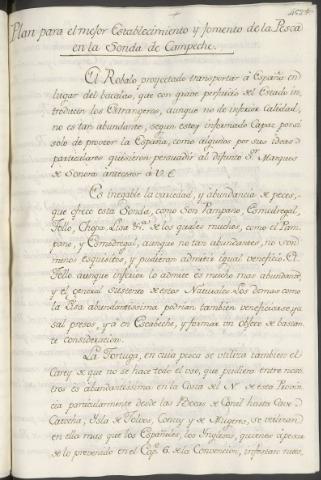 Plan para el mejor Establecimiento y fomento de la Pesca
en la Sonda de Campeche.
El Robalo proyectado transportar á España en
lugar del bacalao, que con grave perjuicio del Estado in
troducen los Estrangeros, aunque no de inferior Calidad,
no es tan abundante, segun estoy informado Capaz por si
solo de proveer la España, como algunos por sus ideas
particulares quisieron persuadir al difunto Sr. Marques
de Sonora antecesor á V.E.
Es inegable la variedad, y abundancia de peces,
que ofrece esta Sonda, como son Pampano, Esmedregal,
Fello, Chopa, Lisa &c. de los quales muchos, como el Pam
pano, y Esmedregal, aunque no tan abundantes, no son
menos esquisitos, y pudieran admitir igual beneficio. El
Fello aunque inferior lo admite es mucho mas abundante,
y el general sustento de estos Naturales. Los demas como
la Lisa abundantissima podrian tambien beneficiarse ya
sal presos, y a en Escabeche, y formar un objeto de bastan
te consideracion.
La Tortuga, en cuia pesca se utiliza tambien el
Carey de que no se hace todo el uso, que pudiera entre noso
tros es abundantissima en la Costa del N. de esta Provin
cia particularmente desde las Bocas de Conil hasta Cavo
Catoche, Isla de Jolvos, Contuy y de Mugeres, se utilizan
en ella mas que los Españoles, los Ingleses, quienes á pesar
de lo prevenido en el Cap. 6. de la Convencion, infestan